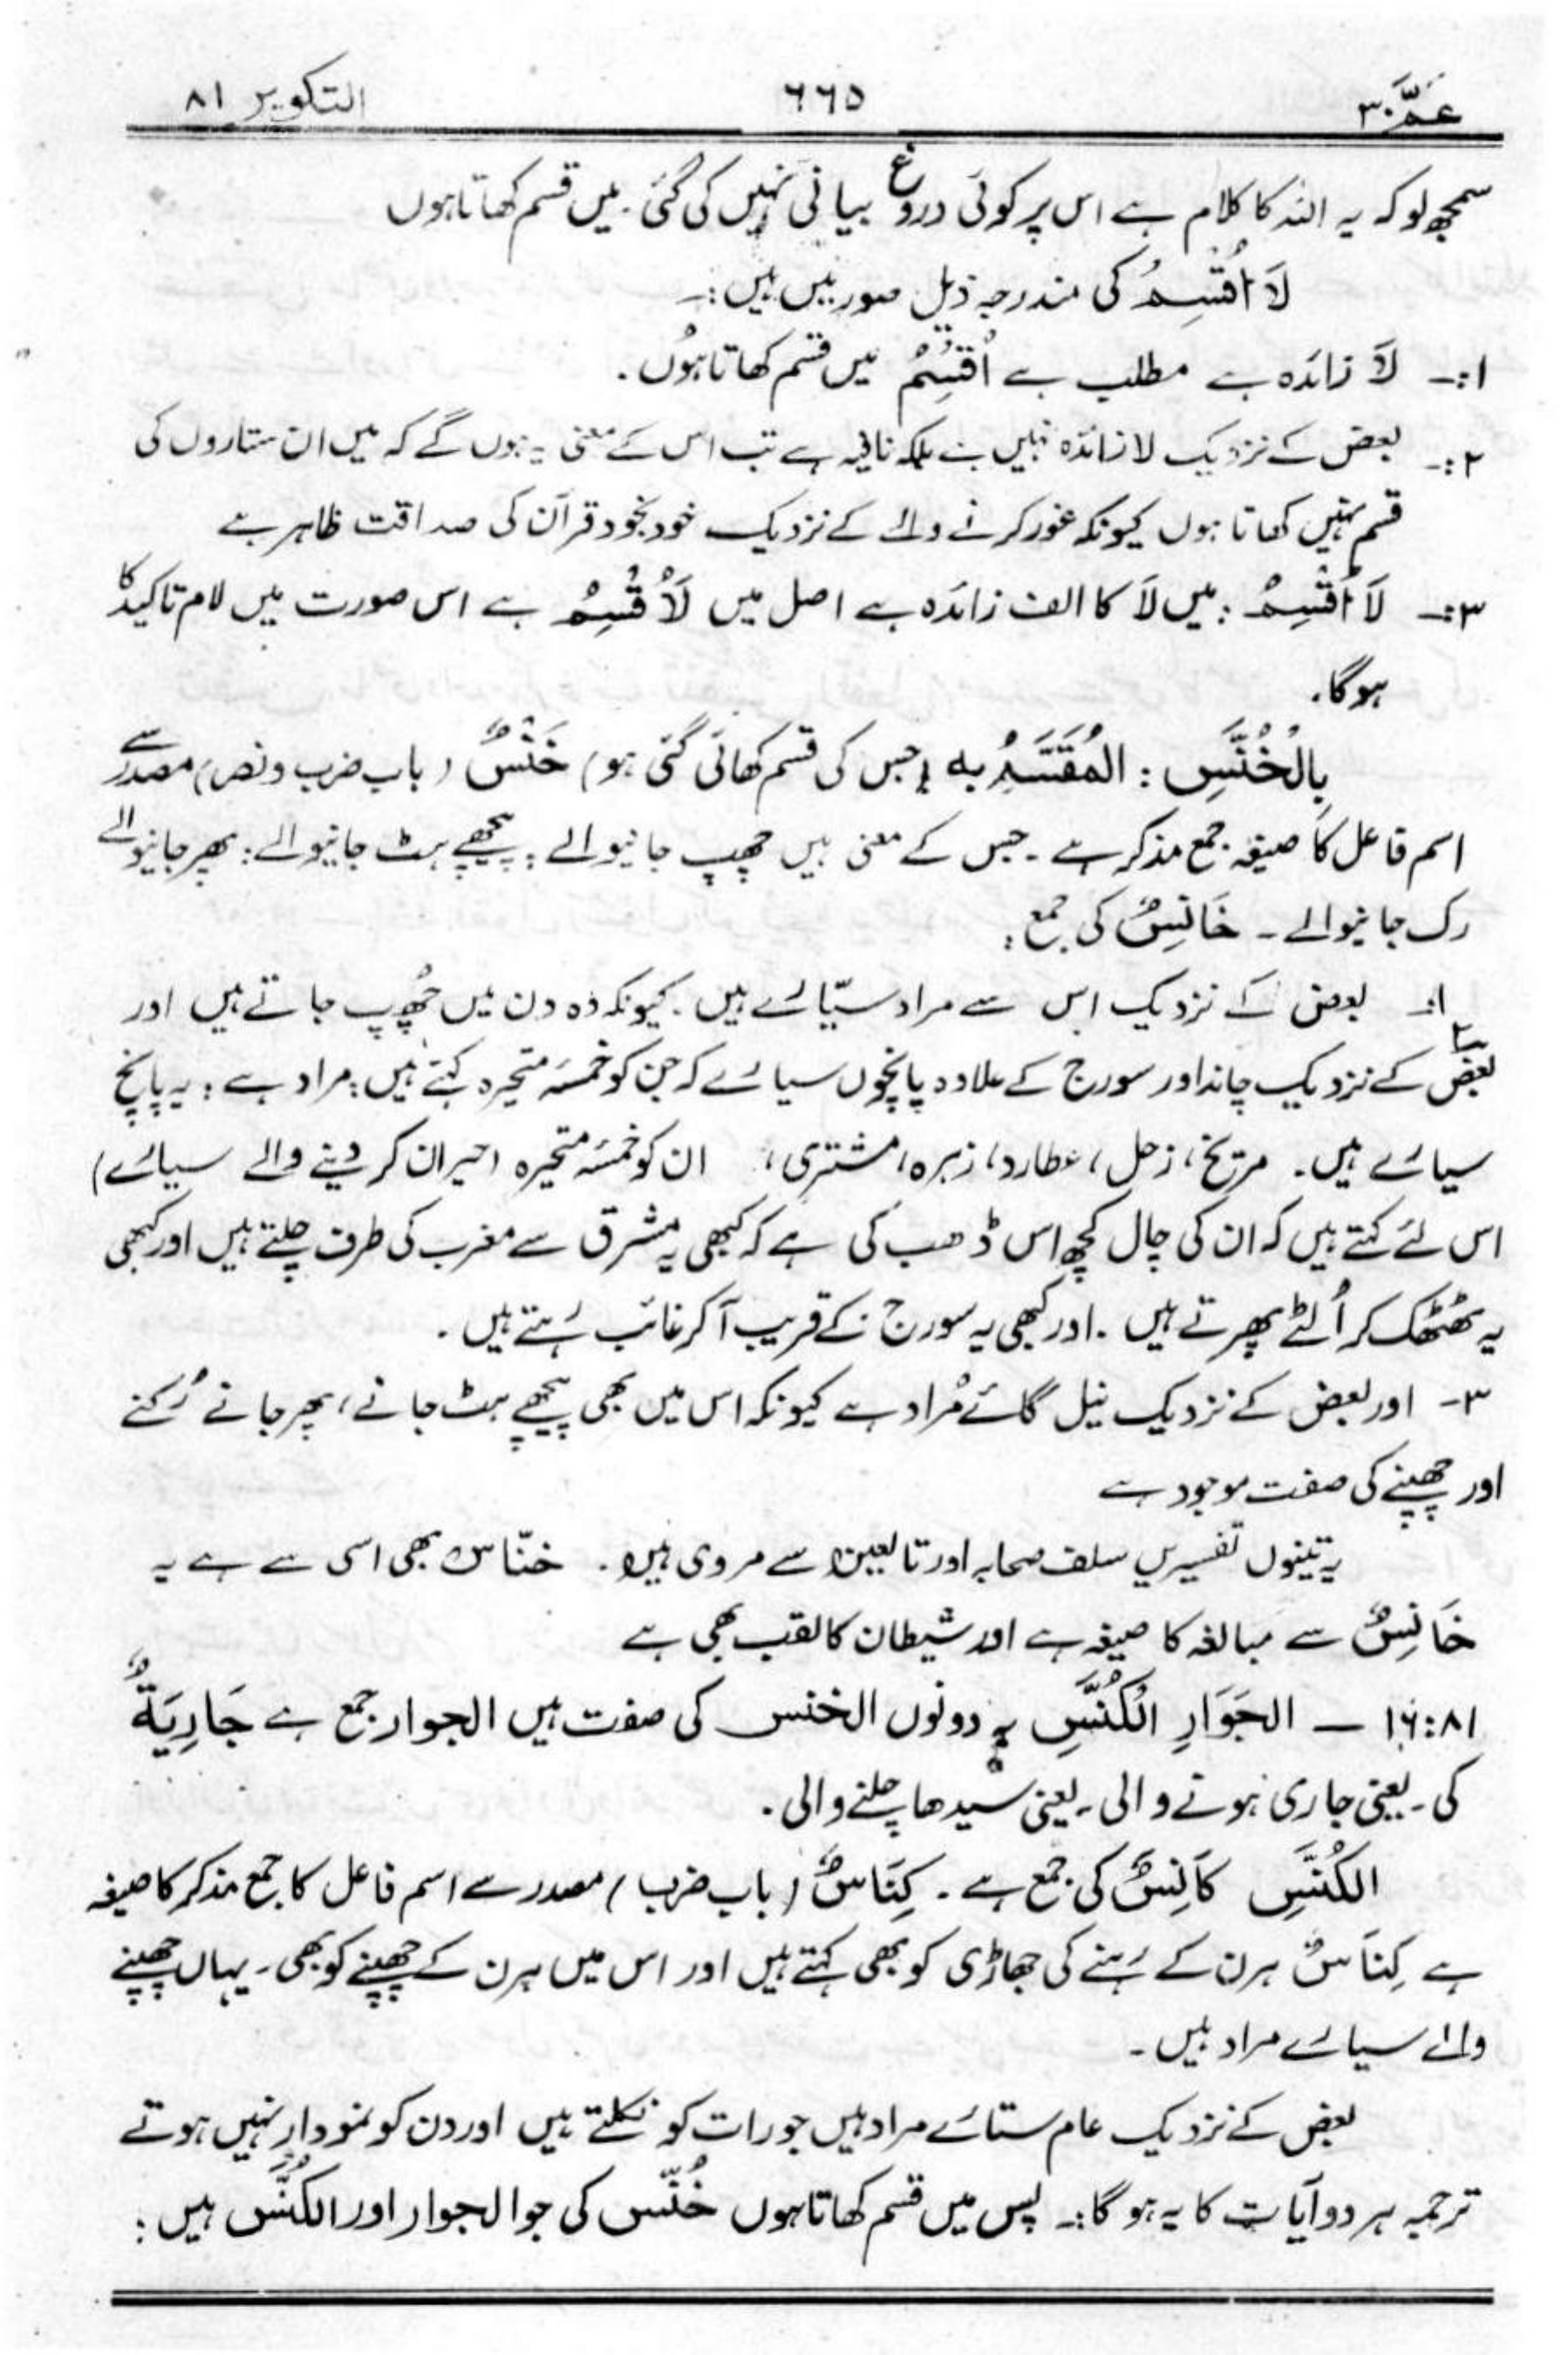 عَمَّ ۳۰ ۶۶۵ التکویر ۸۱
سمجھ لو کہ یہ اللہ کا کلام ہے اس پر کوئی دروغ بیانی نہیں کی گئی۔ میں قسم کھاتا ہوں
لَا اُقْسِمُ کی مندرجہ ذیل صورتیں ہیں:۔
۱:۔ لَا زائدہ ہے مطلب ہے اُقْسِمُ میں قسم کھاتا ہوں۔
۲:۔ بعض کے نزدیک لا زائدہ نہیں ہے بلکہ نافیہ ہے تب اس کے معنی یہ ہوں گے کہ میں ان ستاروں کی
قسم نہیں کھاتا ہوں کیونکہ غور کرنے والے کے نزدیک خود بخود قرآن کی صداقت ظاہر ہے
۳:۔ لَا اُقْسِمُ: میں لَا کا الف زائدہ ہے اصل میں لَاُقْسِمُ ہے اس صورت میں لام تاکید کا
ہوگا۔
بِالْخُنَّسِ: المُقْسَمُ بہ (جس کی قسم کھائی گئی ہو) خَنْسٌ (باب ضرب و نصر) مصدر سے
اسم فاعل کا صیغہ جمع مذکر ہے۔ جس کے معنی ہیں چھپ جانیوالے: پیچھے ہٹ جانیوالے: پھر جانیوالے
رک جانیوالے۔ خَانِسٌ کی جمع:
۱:۔ بعض کے نزدیک اس سے مراد سیّارے ہیں۔ کیونکہ وہ دن میں چُھپ جاتے ہیں اور
۲ بعض کے نزدیک چاند اور سورج کے علاوہ پانچوں سیارے کہ جن کو خمسہ متحیرہ کہتے ہیں: مراد ہے: یہ پانچ
سیارے ہیں۔ مریخ، زحل، عطارد، زہرہ، مشتری، ان کو خمسہ متحیرہ (حیران کر دینے والے سیارے)
اس لئے کہتے ہیں کہ ان کی چال کچھ اس ڈھب کی ہے کہ کبھی یہ مشرق سے مغرب کی طرف چلتے ہیں اور کبھی
یہ ٹھٹھک کر اُلٹے پھرتے ہیں۔ اور کبھی یہ سورج کے قریب آکر غائب رہتے ہیں۔
۳۔ اور بعض کے نزدیک نیل گائے مُراد ہے کیونکہ اس میں بھی پیچھے ہٹ جانے، پھر جانے رُکنے
اور چھپنے کی صفت موجود ہے
یہ تینوں تفسیریں سلف صحابہ اور تابعین سے مروی ہیں۔ خنّاس بھی اسی سے ہے یہ
خَانِسٌ سے مبالغہ کا صیغہ ہے اور شیطان کا لقب بھی ہے
۸۱:۱۶ ــ الجَوَارِ الْکُنَّسِ یہ دونوں الخنس کی صفت ہیں الجوار جمع ہے جَارِیَۃٌ
کی۔ یعنی جاری ہونے والی۔ یعنی سیدھا چلنے والی۔
الکُنَّسِ کَانِسٌ کی جمع ہے۔ کِنَاسٌ (باب ضرب) مصدر سے اسم فاعل کا جمع مذکر کا صیغہ
ہے کِنَاسٌ ہرن کے رہنے کی جھاڑی کو بھی کہتے ہیں اور اس میں ہرن کے چھپنے کو بھی۔ یہاں چھپنے
والے سیارے مراد ہیں۔
بعض کے نزدیک عام ستارے مراد ہیں جو رات کو نکلتے ہیں اور دن کو نمودار نہیں ہوتے
ترجمہ ہر دو آیات کا یہ ہو گا:۔ پس میں قسم کھاتا ہوں خُنَّس کی جو الجوار اور الکُنَّس ہیں: